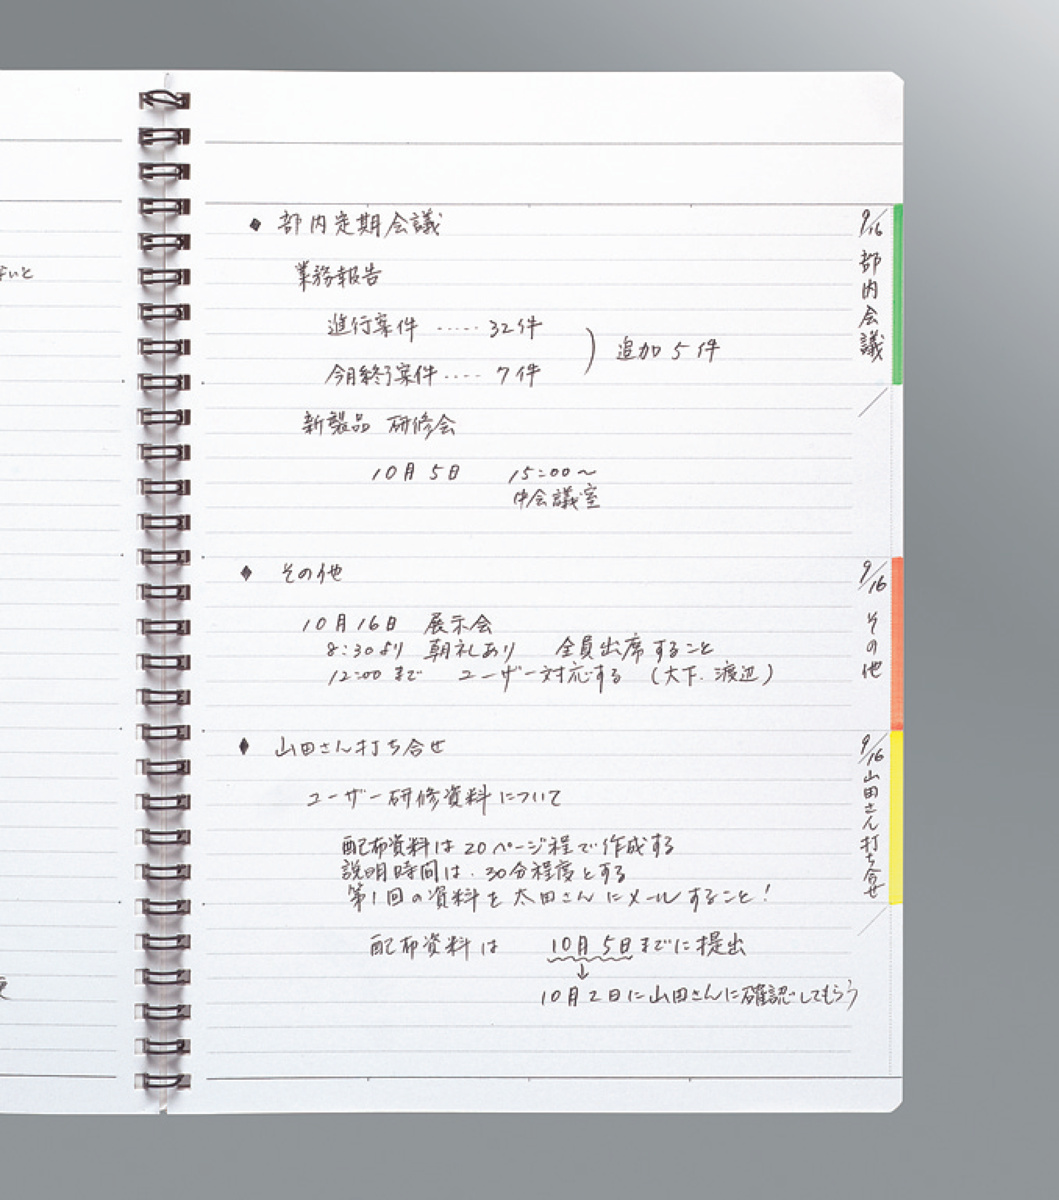 ないと
◆ 部内定期会議
業務報告
進行案件 ‥‥‥ 32件
今月終了案件 ‥‥ 7件
) 追加 5件
新製品 研修会
10月5日 15:00～
中会議室
◆ その他
10月16日 展示会
8:30より 朝礼あり 全員出席すること
12:00まで ユーザー対応する (大下. 渡辺)
◆ 山田さん打ち合せ
ユーザー研修資料について
配布資料は20ページ程で作成する
説明時間は.30分程度とする
第1回の資料を太田さんにメールすること!
配布資料は 10月5日までに提出
↓
10月2日に山田さんに確認してもらう
9/16 部内会議
9/16 その他
9/16 山田さん打ち合せ